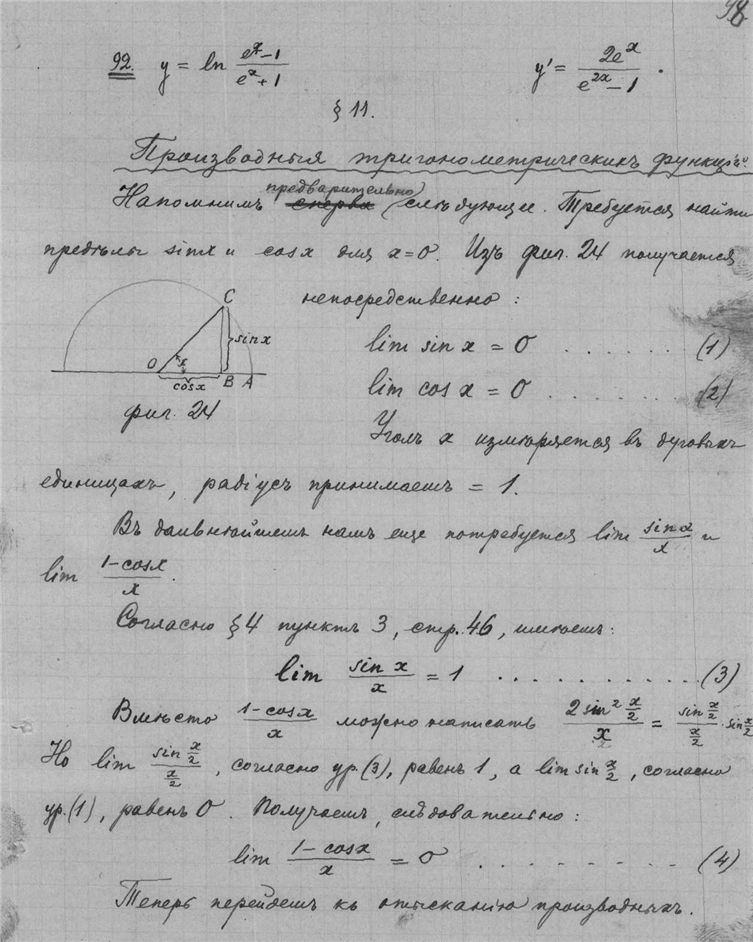 98
92. y = ln (eˣ-1)/(eˣ+1) y' = 2eˣ/(e²ˣ-1).
§ 11.
Производныя тригонометрическихъ функцій.
предварительно
Напомнимъ сперва слѣдующее. Требуется найти
предѣлы sin x и cos x для x=0. Изъ фиг. 24 получается
непосредственно:
C
sin x
O x B A
cos x
фиг. 24
lim sin x = 0 . . . . . . . (1)
lim cos x = 0 . . . . . . . (2)
Уголъ x измѣряется въ дуговыхъ
единицахъ, радіусъ принимаемъ = 1.
Въ дальнѣйшемъ намъ еще потребуется lim sin x/x и
lim (1-cos x)/x.
Согласно § 4 пунктъ 3, стр. 46, имѣемъ:
lim sin x/x = 1 . . . . . . . . . . . . (3)
Вмѣсто (1-cos x)/x можно написать (2 sin² x/2)/x = (sin x/2)/(x/2) · sin x/2
Но lim (sin x/2)/(x/2), согласно ур. (3), равенъ 1, а lim sin x/2, согласно
ур. (1), равенъ 0. Получаемъ, слѣдовательно:
lim (1-cos x)/x = 0 . . . . . . . . . . (4)
Теперь перейдемъ къ отысканію производныхъ.